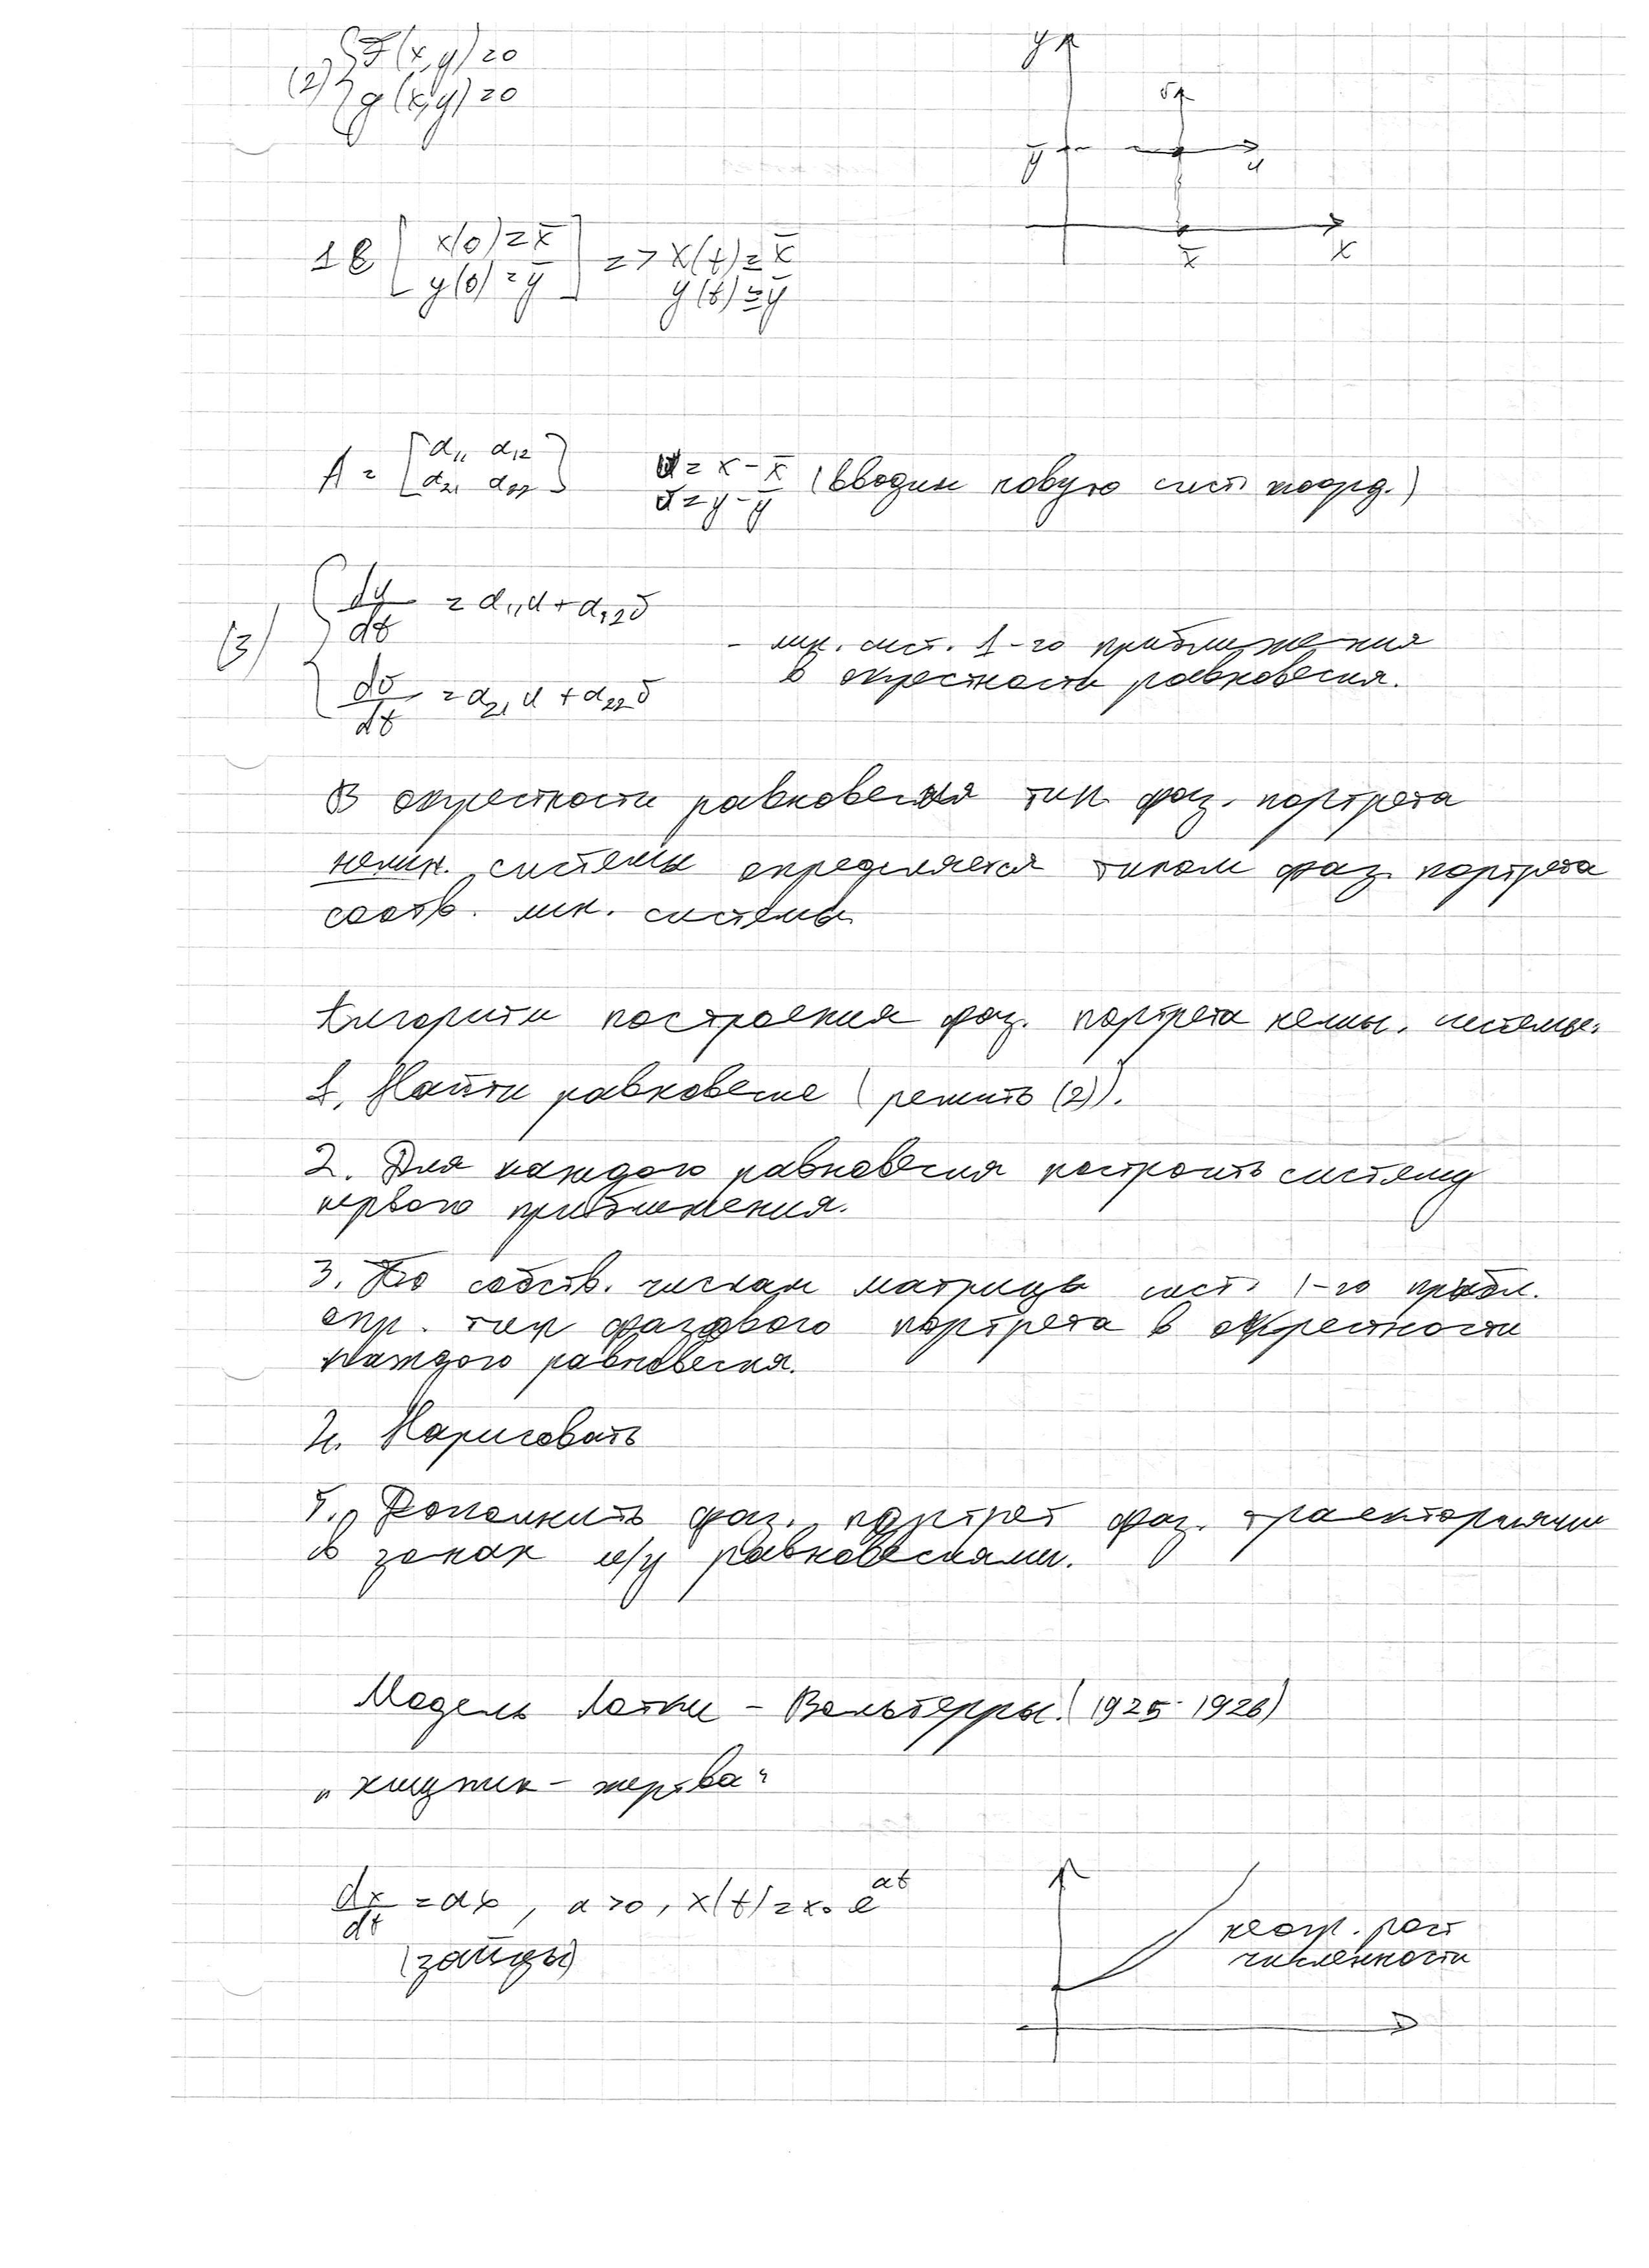 (2) { F(x,y)=0
g(x,y)=0
y
v
ȳ
u
x̄
x
1 в [ x(0)=x̄
y(0)=ȳ ] => x(t)≡x̄
y(t)≡ȳ
A = [ a₁₁ a₁₂
a₂₁ a₂₂ ]
u = x - x̄
v = y - ȳ (вводим новую сист. коорд.)
(3) { du/dt = a₁₁u + a₁₂v
dv/dt = a₂₁u + a₂₂v
- лин. сист. 1-го приближения
в окрестности равновесия.
В окрестности равновесия тип фаз. портрета
нелин. системы определяется типом фаз. портрета
соотв. лин. системы
Алгоритм построения фаз. портрета нелин. системы.
1. Найти равновесие (решить (2)).
2. Для каждого равновесия построить систему
первого приближения.
3. По собств. числам матрицы сист. 1-го прибл.
опр. тип фазового портрета в окрестности
каждого равновесия.
4. Нарисовать
5. Дополнить фаз. портрет фаз. траекториями
в зонах м/у равновесиями.
Модель Лотки - Вольтерры. (1925-1926)
"хищник - жертва"
dx/dt = ax, a>0, x(t)=x₀e^{at}
(зайцы)
неогр. рост
численности